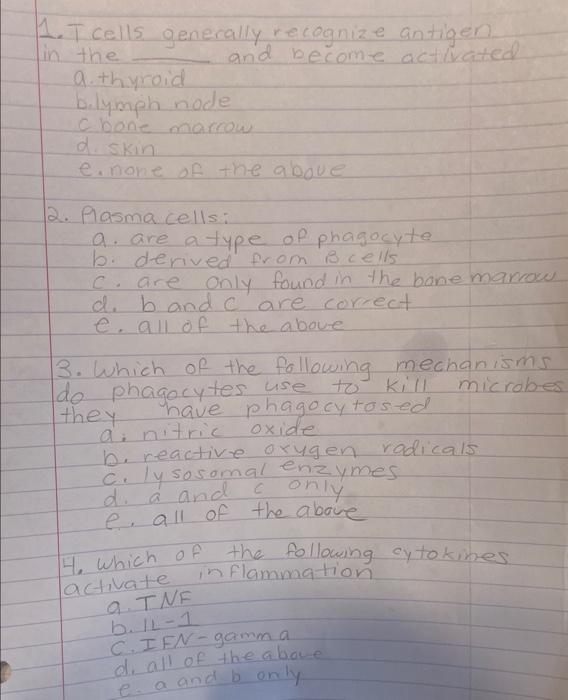 1. T cells generally recognize antigen
in the ______ and become activated
a. thyroid
b. lymph node
c bone marrow
d. skin
e. none of the above
2. Plasma cells:
a. are a type of phagocyte
b. derived from B cells
c. are only found in the bone marrow
d. b and c are correct
e. all of the above
3. Which of the following mechanisms
do phagocytes use to kill microbes
they have phagocytosed
a. nitric oxide
b. reactive oxygen radicals
c. lysosomal enzymes
d. a and c only
e. all of the above
4. Which of the following cytokines
activate inflammation
a. TNF
b. IL-1
c. IFN-gamma
d. all of the above
e. a and b only